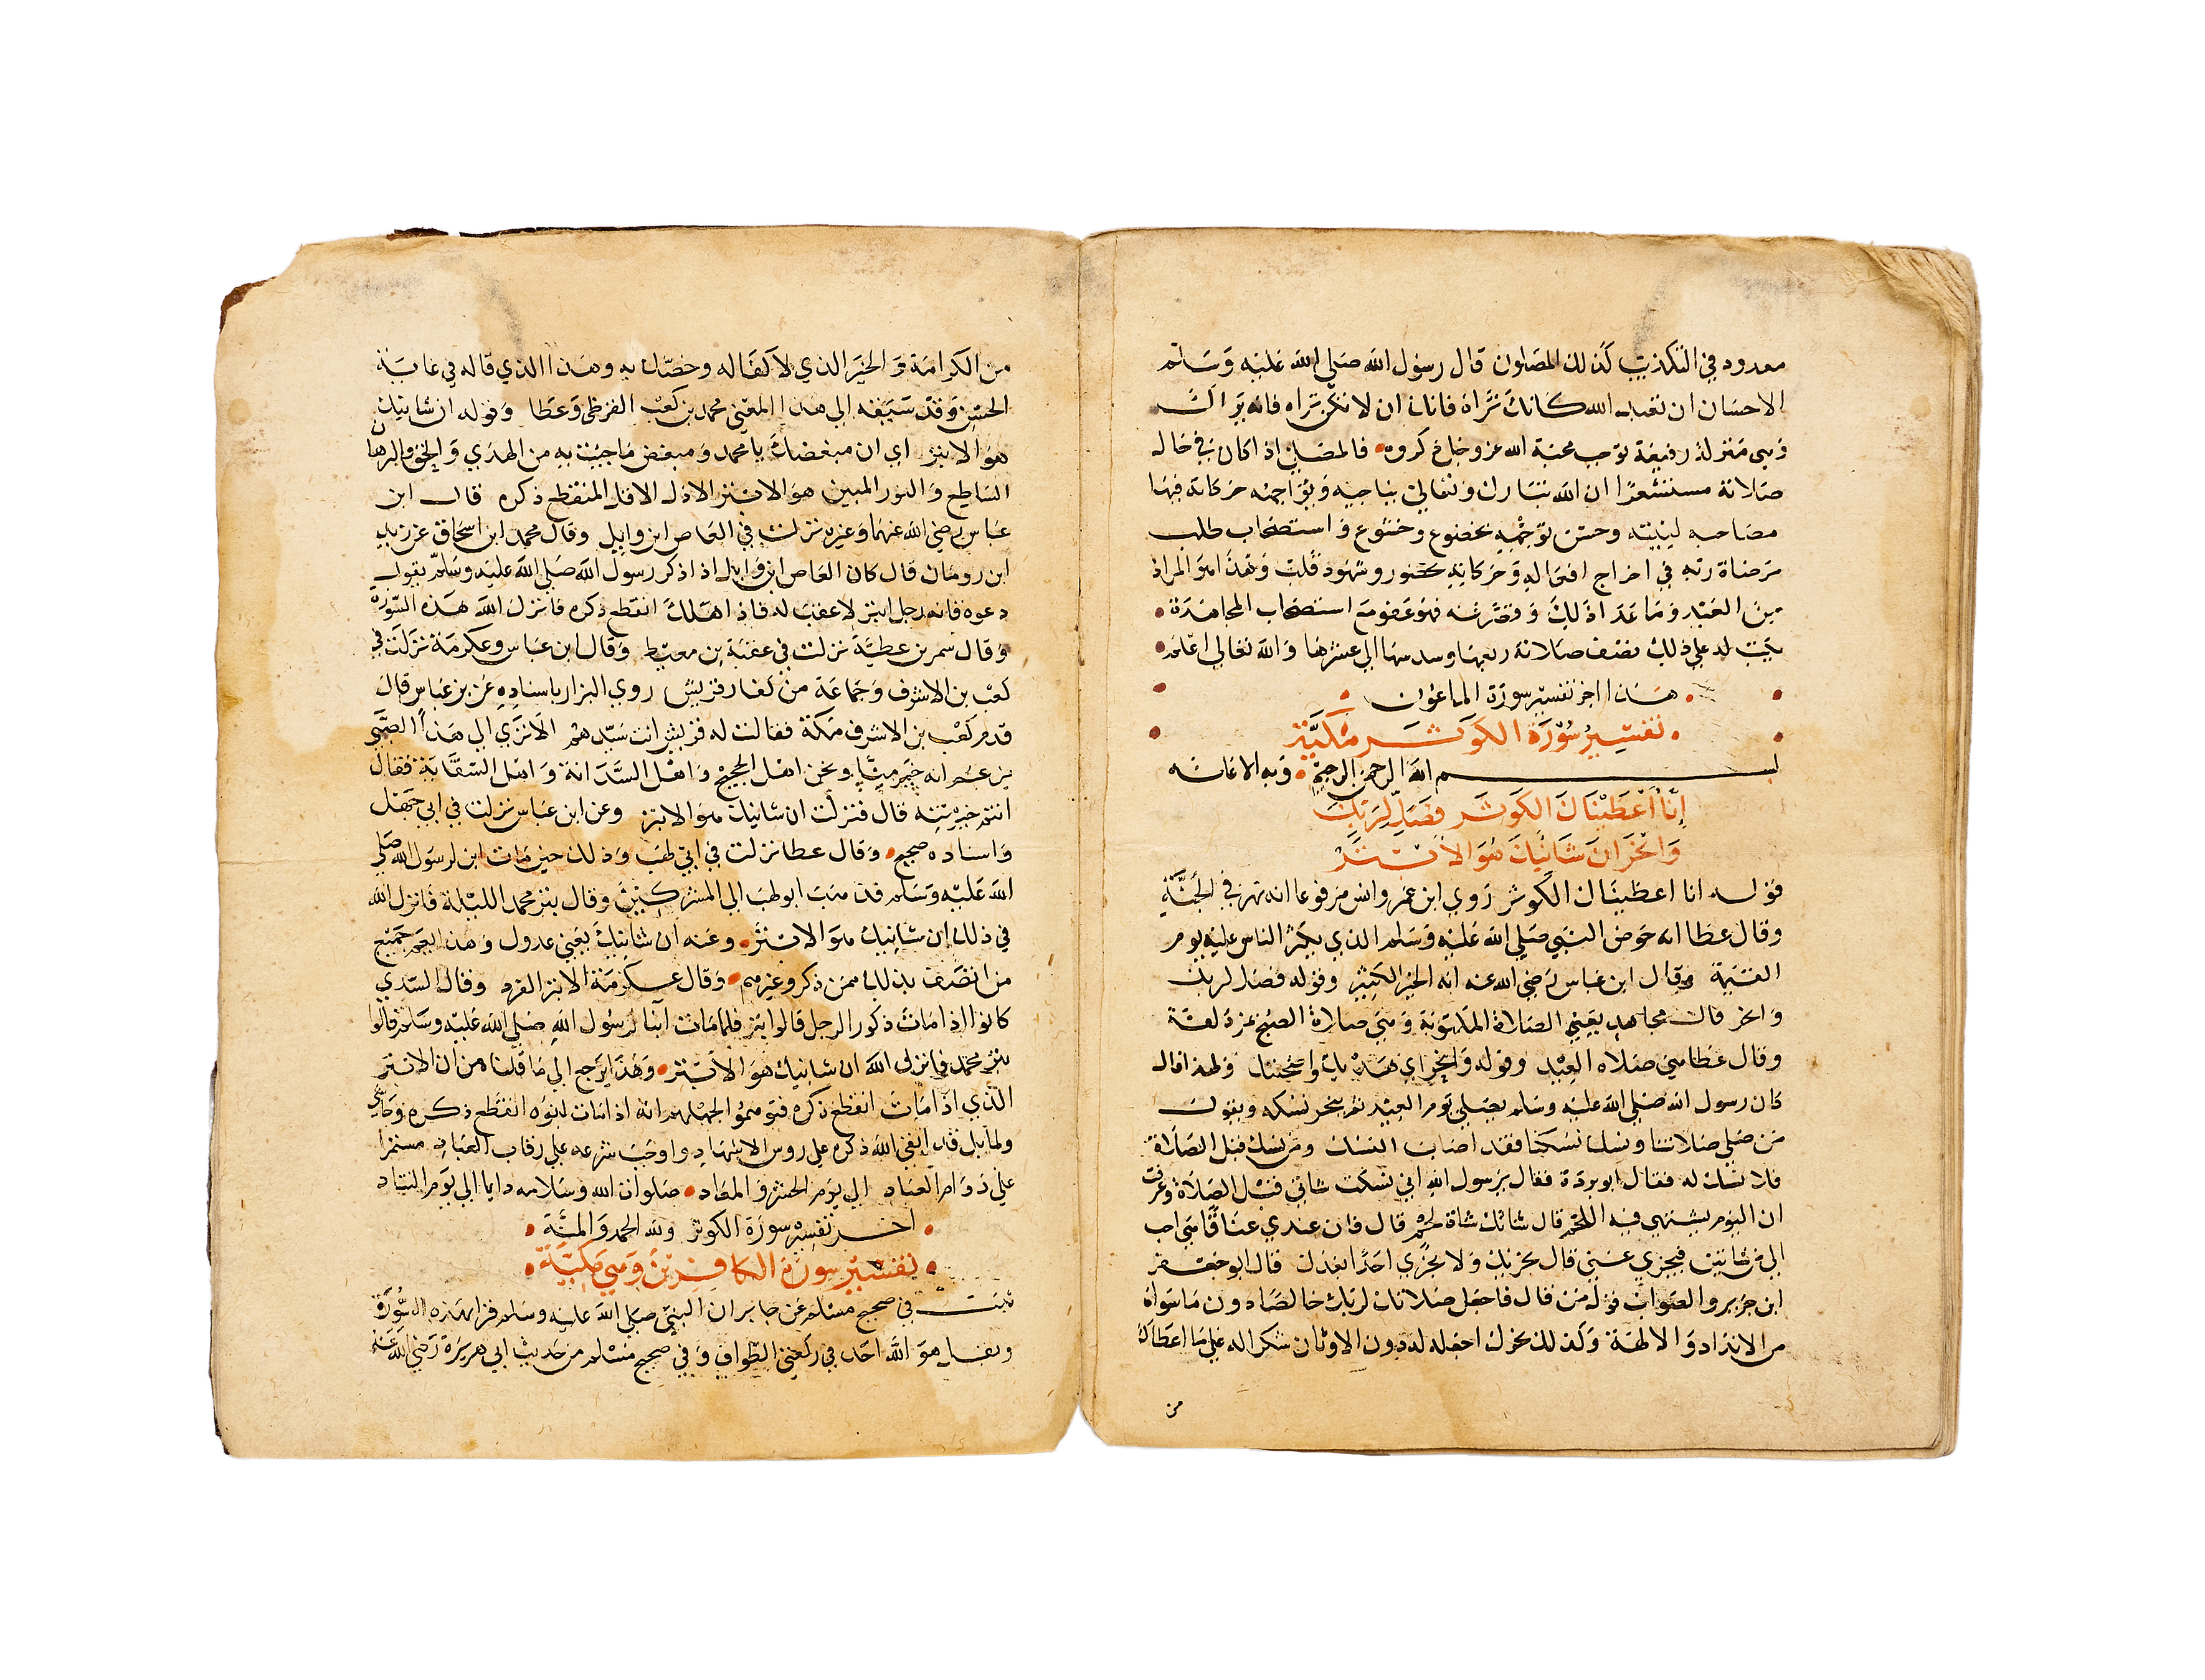 معدود في التكذيب كذلك المصلون قال رسول الله صلى الله عليه وسلم
الاحسان ان تعبد الله كانك تراه فانك ان لا تكن تراه فانه يراك
وهي منزلة رفيعة توجب محبة الله عز وجل فالمصلي اذا كان في حال
صلاته مستشعرا ان الله تبارك وتعالى يناجيه حركاته فيها
مصاحبه لنيته وحسن توجهه بخضوع وخشوع واستصحاب طلب
مرضاة ربه في اخراج افعاله وحركاته بحضور وشهود قلب وهذا هو المراد
من العبد وما عدا ذلك وقصر عنه فهو عفو مع استصحاب المجاهدة
يكتب له على ذلك نصف صلاته ربعها وسدسها الى عشرها والله تعالى اعلم
هذا اخر تفسير سورة الماعون
تفسير سورة الكوثر مكية
بسم الله الرحمن الرحيم وبه الاعانه
إنا أعطيناك الكوثر فصل لربك
وانحر ان شانيك هو الابتر
قوله انا اعطيناك الكوثر روي ابن عمر وانس مرفوعا انه نهر في الجنة
وقال عطا انه حوض النبي صلى الله عليه وسلم الذي يكثر الناس عليه يوم
القيمة وقال ابن عباس رضي الله عنه انه الخير الكثير وقوله فصل لربك
وانحر قال مجاهد يعني الصلاة المكتوبة وهي صلاة الصبح بمزدلفة
وقال عطا هي صلاه العيد وقوله وانحر اي هديك واضحيتك ولهذا قال
كان رسول الله صلى الله عليه وسلم يصلي يوم العيد ثم ينحر نسكه ويقول
من صلى صلاتنا ونسك نسكنا فقد اصاب النسك ومن نسك قبل الصلاة
فلا نسك له فقال ابو بردة فقال يرسول الله اني نسكت شاتي قبل الصلاة وعرفت
ان اليوم يشتهي فيه اللحم قال شاتك شاة لحم قال فان عندي عناقا هي احب
الي من شاتين فيجزي عني قال تجزيك ولا تجزي احدا بعدك قال ابو جعفر
ابن جرير والصواب قول من قال فاجعل صلاتك لربك خالصا دون ما سواه
من الانداد والالهة وكذلك نحرك اجعله له دون الاوثان شكرا له على ما اعطاك
من
من الكرامة والخير الذي لا كفا له وخصك به وهذا الذي قاله في غاية
الحسن وقد سبقه الى هذا المعني محمد بن كعب القرظي وعطا وقوله ان شانيك
هو الابتر اي ان مبغضك يا محمد ومبغض ما جيت به من الهدي والحق والبرهان
الساطع والنور المبين هو الابتر الاذل الاقل المنقطع ذكره قال ابن
عباس رضي الله عنهما وغيره نزلت في العاص ابن وايل وقال محمد ابن اسحاق عن يزيد
ابن رومان قال كان العاص ابن وايل اذا ذكر رسول الله صلى الله عليه وسلم يقول
دعوه فانه رجل ابتر لا عقب له فاذا هلك انقطع ذكره فانزل الله هذه السورة
وقال سمر بن عطية نزلت في عقبة بن معيط وقال ابن عباس وعكرمة نزلت في
كعب بن الاشرف وجماعة من كفار قريش روي البزار باسناده عن بن عباس قال
قدم كعب بن الاشرف مكة فقالت له قريش انت سيدهم الا تري الى هذا الصبي
يزعم انه خير منا ونحن اهل الحجيج واهل السدانة واهل السقاية فقال
انتم خير منه قال فنزلت ان شانيك هو الابتر وعن ابن عباس نزلت في ابي جهل
واسناده صحيح وقال عطا نزلت في ابي لهب وذلك حين مات ابن لرسول الله صلى
الله عليه وسلم فذهب ابو لهب الى المشركين وقال بتر محمد الليلة فانزل الله
في ذلك ان شانيك هو الابتر وعنه ان شانيك يعني عدوك وهذا يعم جميع
من اتصف بذلك ممن ذكر وغيرهم وقال عكرمة الابتر الفرد وقال السدي
كانوا اذا مات ذكور الرجل قالوا بتر فلما مات ابنا لرسول الله صلى الله عليه وسلم قالوا
بتر محمد فانزل الله ان شانيك هو الابتر وهذا يرجع الى ما قلنا من ان الابتر
الذي اذا مات انقطع ذكره فتوهموا لجهلهم انه اذا مات بنوه انقطع ذكره وحاشى
وكلا بل قد ابقى الله ذكره على روس الاشهاد واوجب شرعه على رقاب العباد مستمرا
على دوام العباد الى يوم الحشر والمعاد صلوات الله وسلامه دايما الى يوم التناد
اخر تفسير سورة الكوثر ولله الحمد والمنة
تفسير سورة الكافرين وهي مكية
ثبت في صحيح مسلم عن جابر ان النبي صلى الله عليه وسلم قرا بهذه السورة
وبقل هو الله احد في ركعتي الطواف وفي صحيح مسلم من حديث ابي هريرة رضي الله عنه